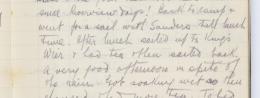 Back to camp &
went for a sail with Sanders till lunch
time. After lunch sailed up to King's
Wier & had tea & then sailed back.
A very good afternoon in spite of
the rain. Got soaking wet so then
more tea. To bed